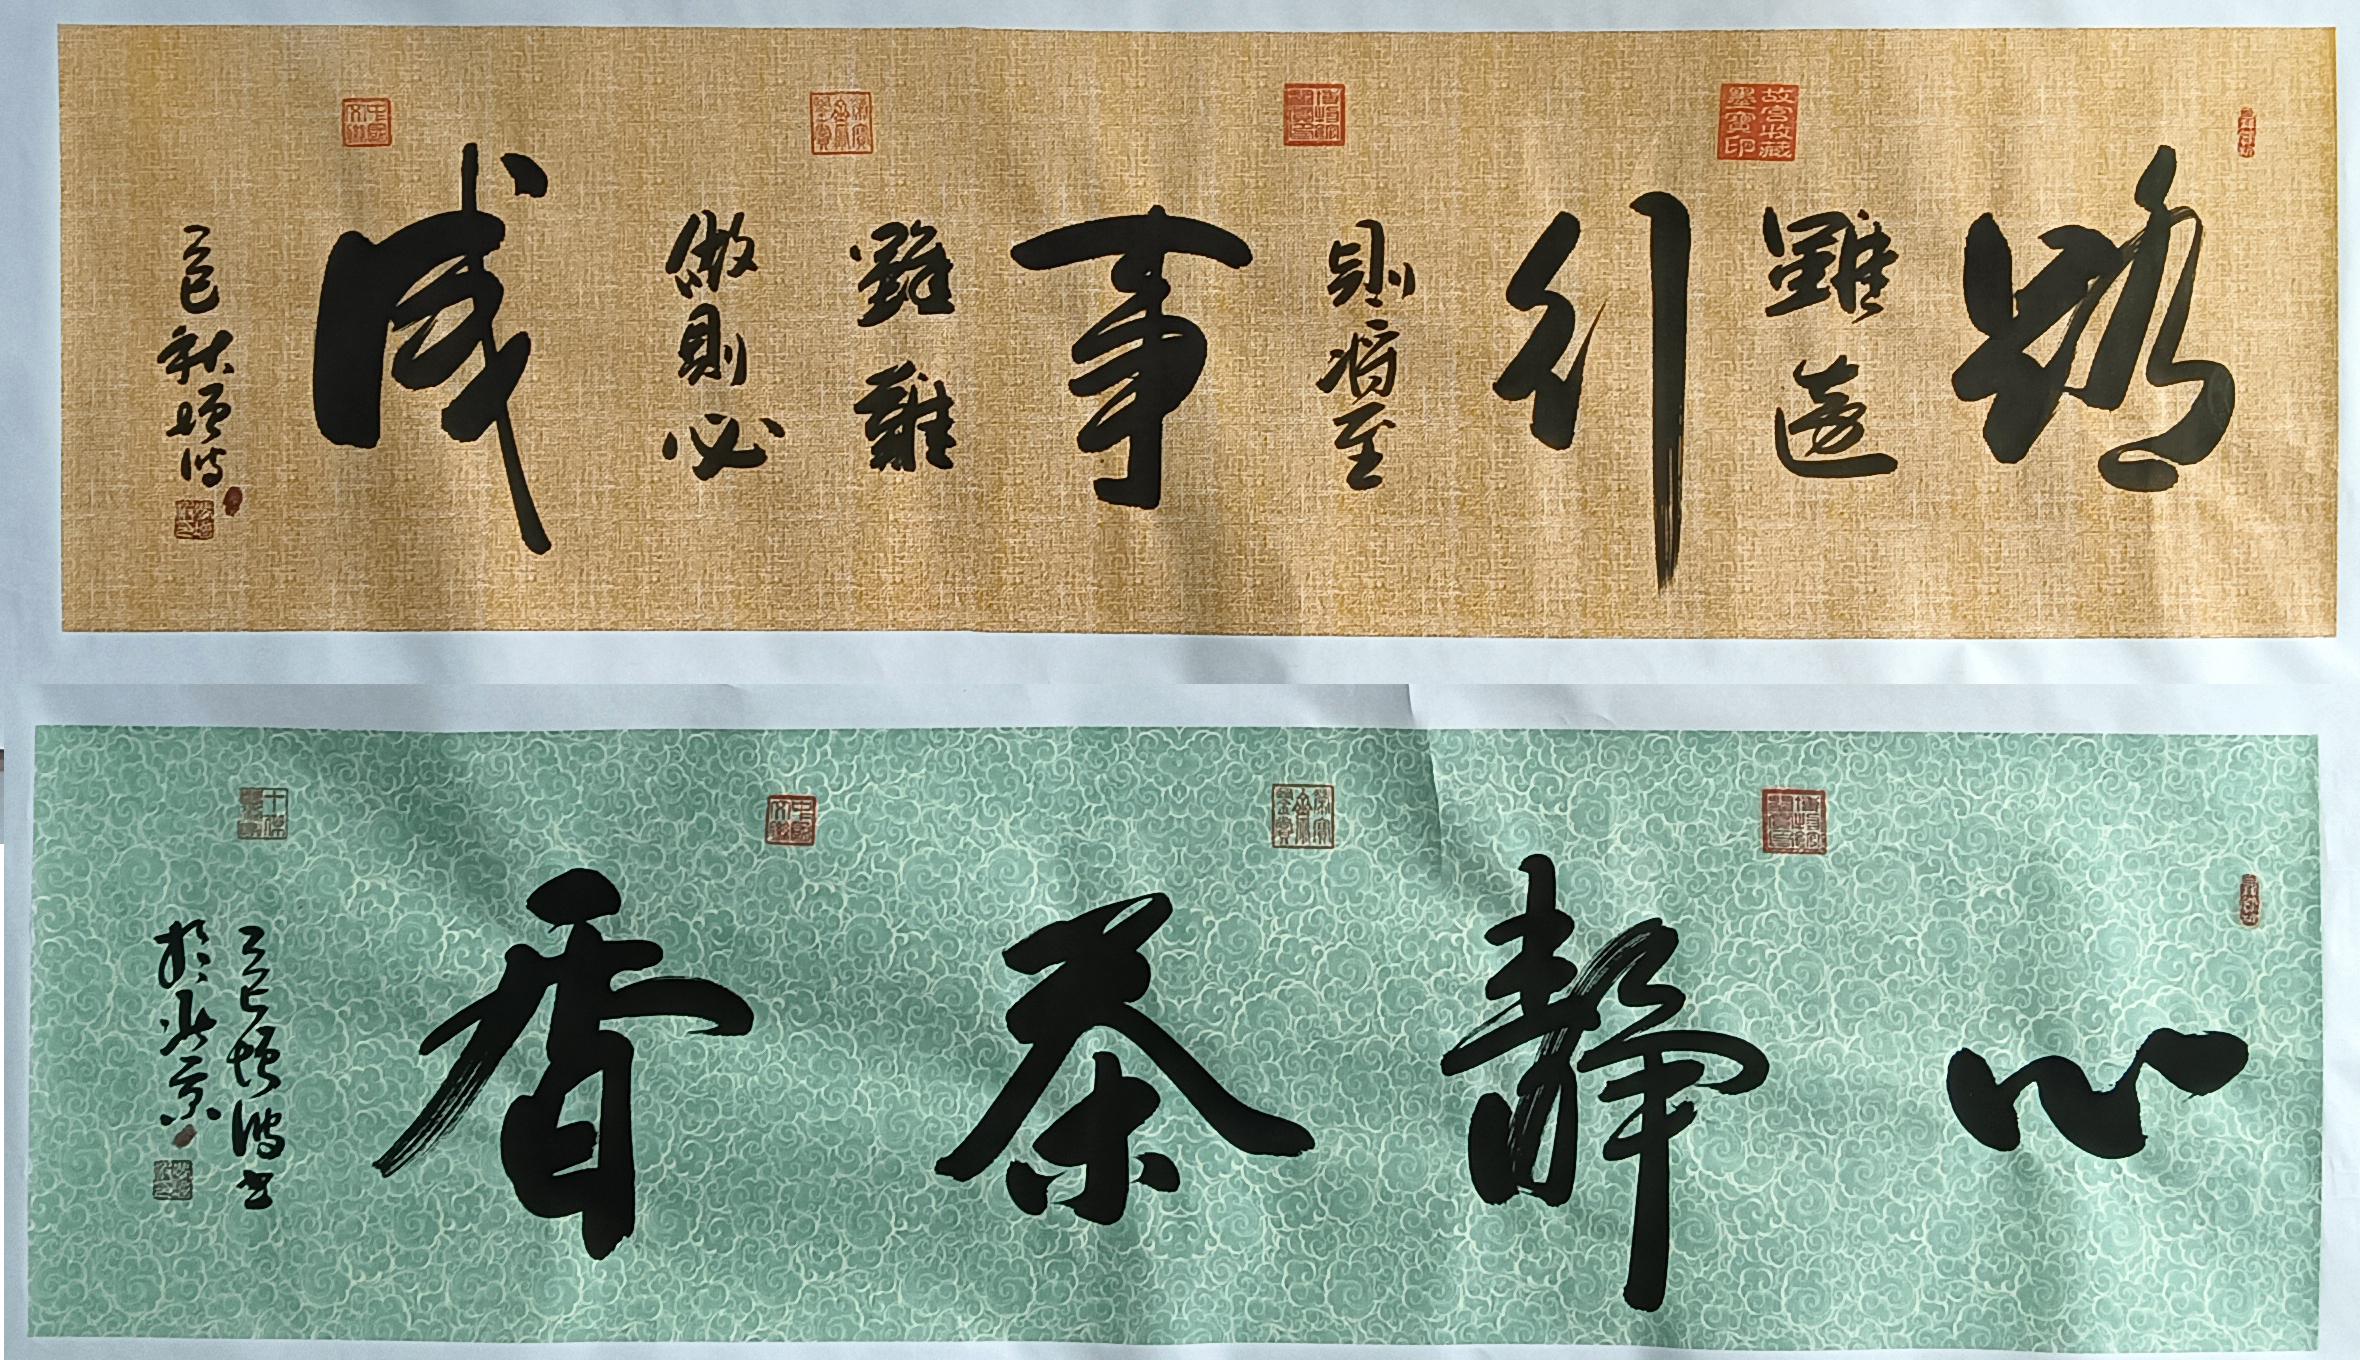 路
雖遠
行
則將至
事
雖難
做則必
成
乙巳秋增鴻
故宮收藏
墨寶印
中國
心
靜
茶
香
乙巳增鴻書
於北京
十傑
中國